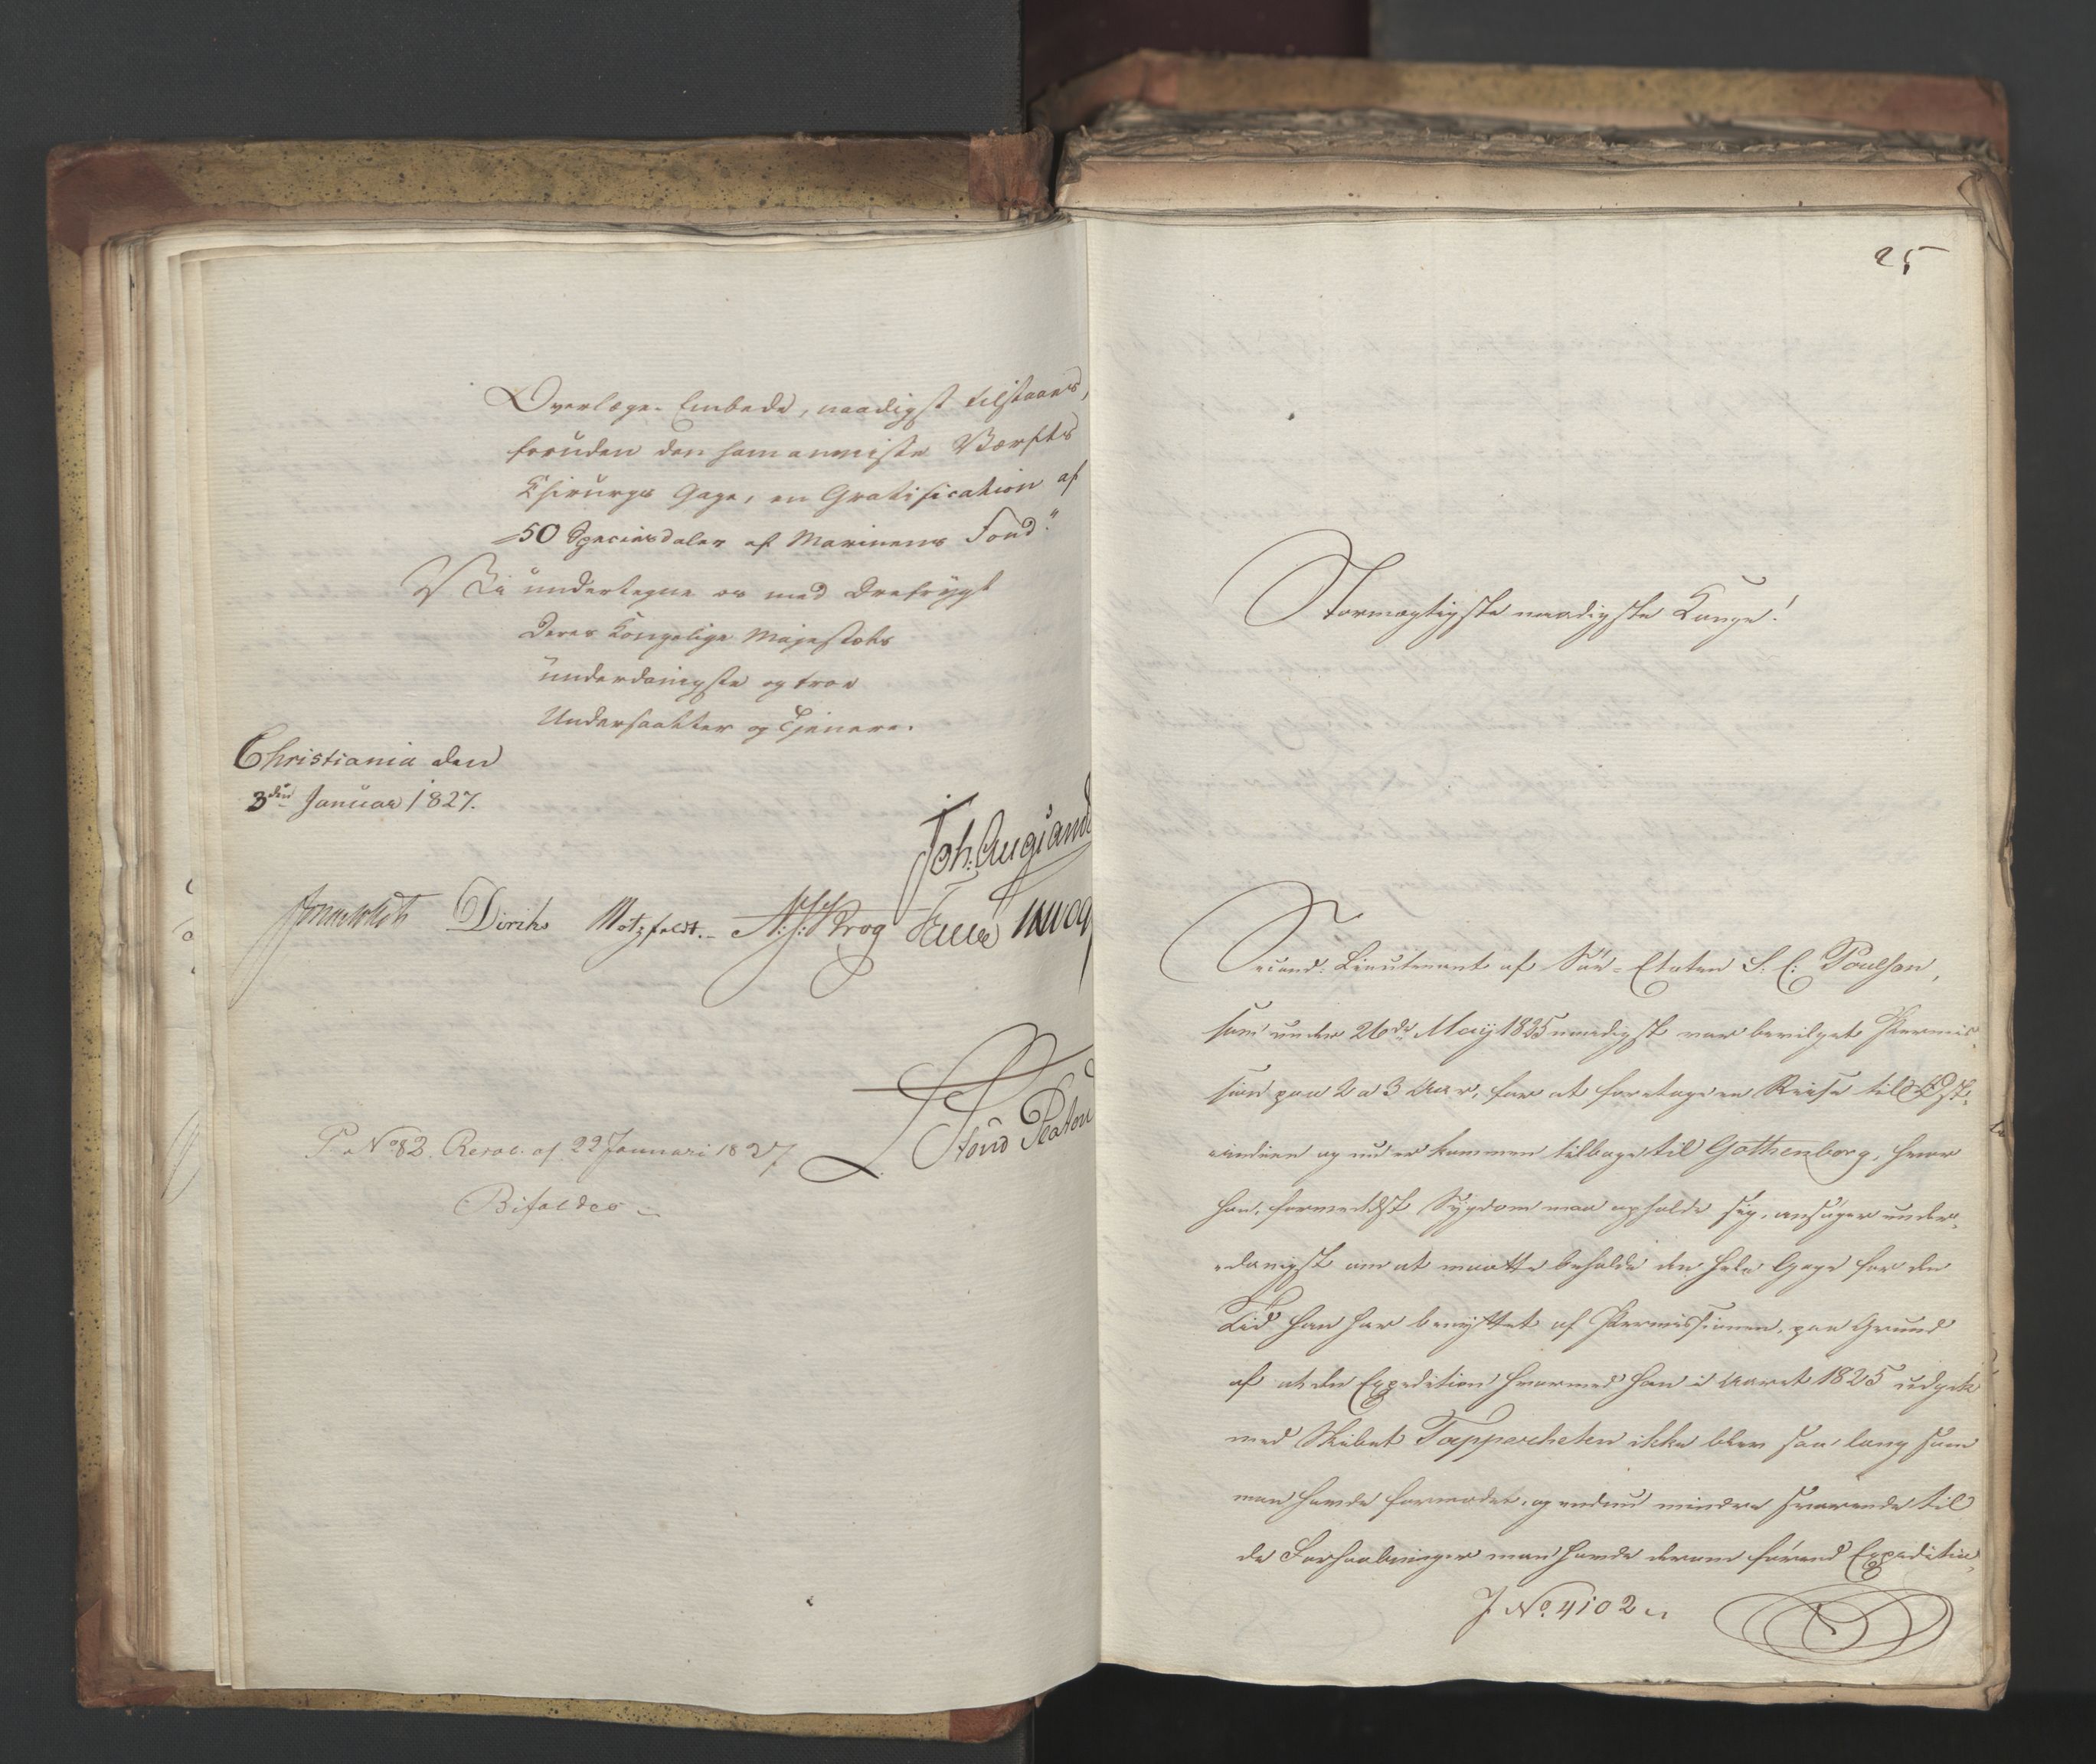 Overlæge-Embede, naadigst tilstaaes,
foruden den ham anviiste Værfts
Chirurgs Gage, en Gratification af
50 Speciesdaler af Marinens Fond."
Vi undertegne os med Ærefrygt
Deres Kongelige Majestæts
underdanigste og troe
Undersaatter og Tjenere.
Christiania den
3die Januar 1827.
Joh. Aug: Sand
Diriks Motzfeldt. Krog
P. No 82. Resol. af 22 Januari 1827
Bifaldes
25
Stormægtigste naadigste Konge!
Second-Lieutenant af Søe-Etaten S. C: Poulson,
som under 26de May 1825 naadigst var bevilget Permis-
sion paa 2 a 3 Aar, for at foretage en Reise til Ost-
indien og nu er kommen tilbage til Gothenborg, hvor
han, formedelst Sygdom maa opholde sig, ansøger under-
danigst om at maatte beholde den hele Gage for den
Tid han har benyttet af Permissionen, paa Grund
af at den Expedition hvormed han i Aaret 1825 udgik
med Skibet Tapperheten ikke blev saa lang som
man havde formodet, og endnu mindre svarende til
de Forhaabninger man havde derom førend Expeditio-
J. No. 4102